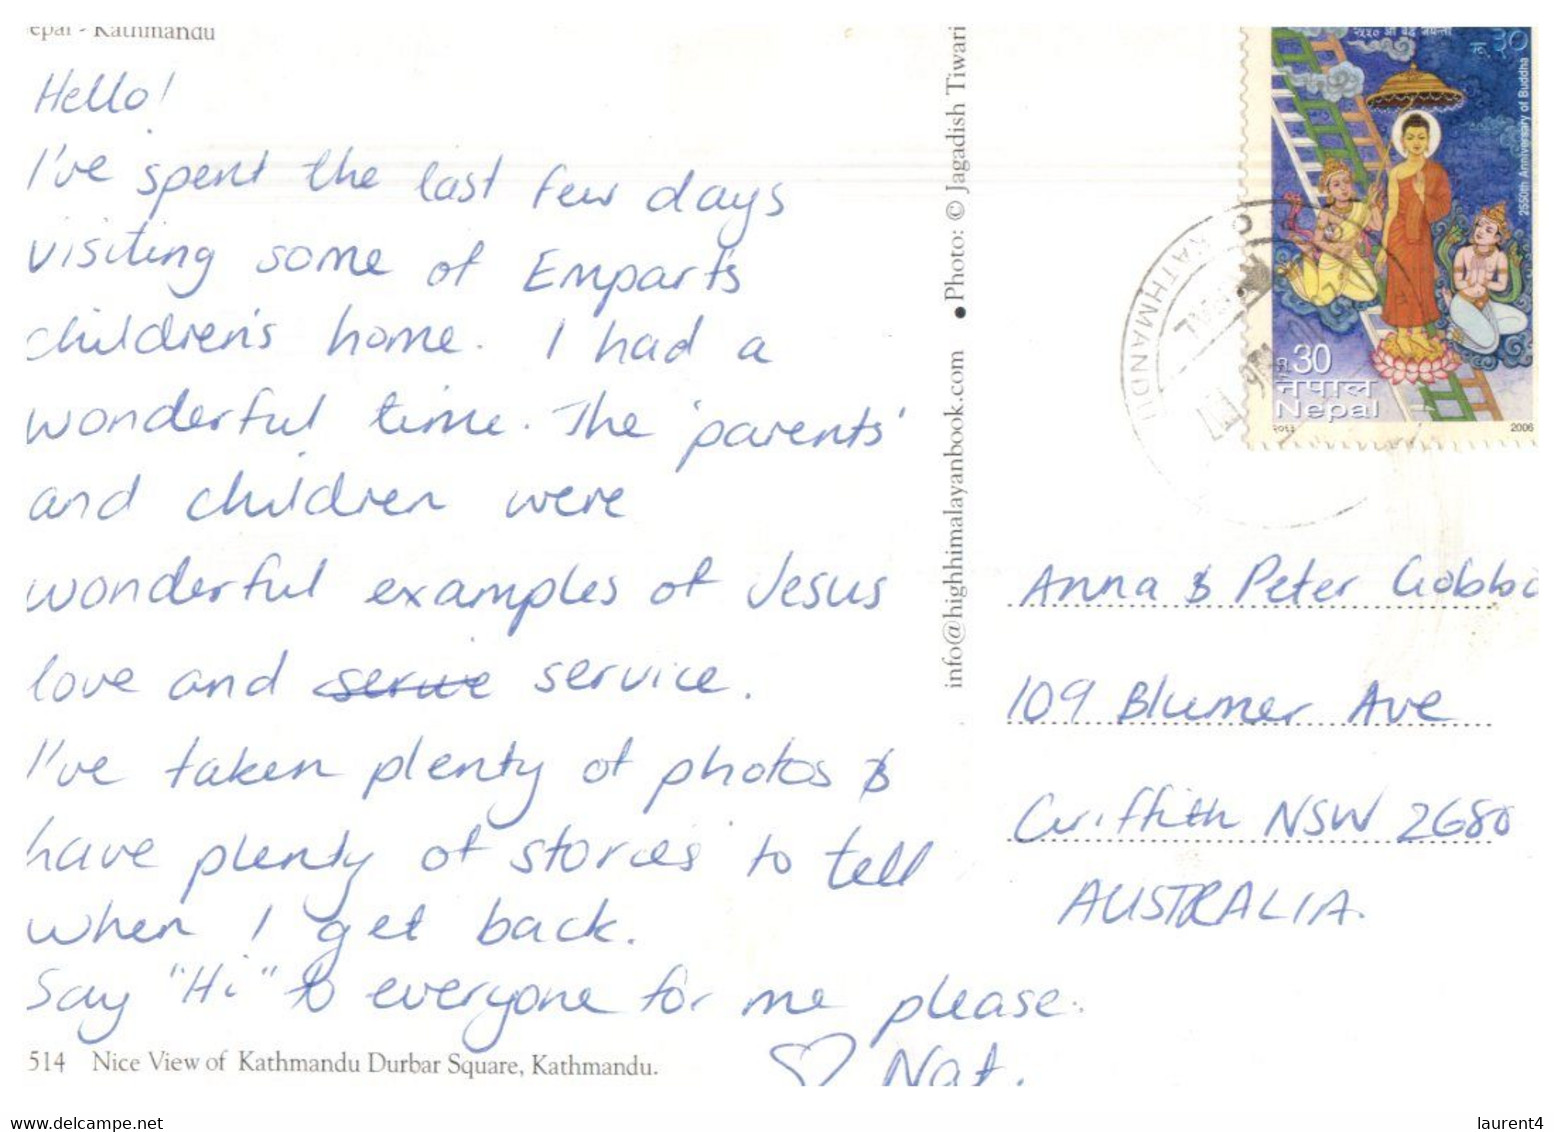 Kathmandu
Hello!
I've spent the last few days
visiting some of Emparts
children's home. I had a
wonderful time. The 'parents'
and children were
wonderful examples of Jesus
love and service.
I've taken plenty of photos &
have plenty of stories to tell
when I get back.
Say "Hi" to everyone for me please.
♡ Nat.
514 Nice View of Kathmandu Durbar Square, Kathmandu.
info@highhimalayanbook.com • Photo: © Jagadish Tiwari
रु. ३०
2550th Anniversary of Buddha
30
नेपाल
Nepal
2006
KATHMANDU
Anna & Peter
109 Blumer Ave
Griffith NSW 2680
AUSTRALIA.
www.delcampe.net
laurent4